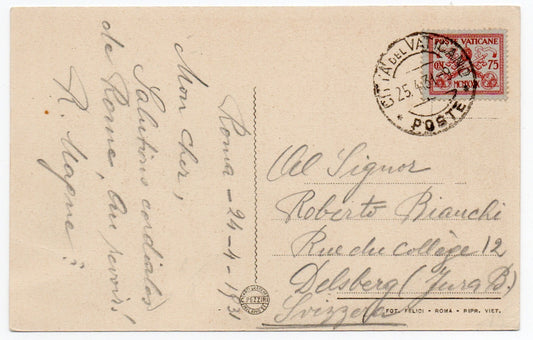 Roma - 24-4-1931
Mon cher,
Salutions cordiales
de Rome, Au revoir!
R. Magne
POSTE VATICANE
CITTÀ DEL VATICANO
25.4.31
POSTE
75
MCMXXIX
Al Signor
Roberto Bianchi
Rue du collège 12
Delsberg (Jura B.)
Svizzera
FOT. FELICI - ROMA - RIPR. VIET.